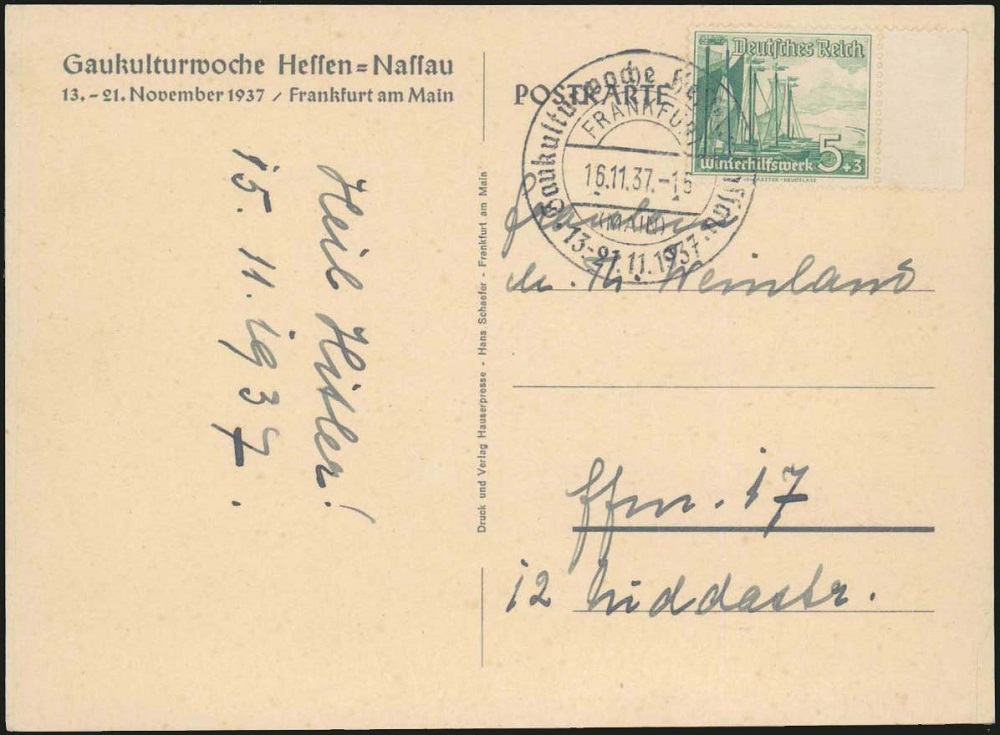 Gaukulturwoche Hessen=Nassau
13.-21. November 1937 / Frankfurt am Main
Heil Hitler!
15. 11. 1937.
Druck und Verlag Hauserpresse - Hans Schaefer - Frankfurt am Main
POSTKARTE
Gaukulturwoche Hessen-Nassau.
FRANKFURT
16.11.37.-15
(MAIN)
13-21.11.1937
Deutsches Reich
Winterhilfswerk 5+3
Weinland
Ffm. 17
12 Niddastr.